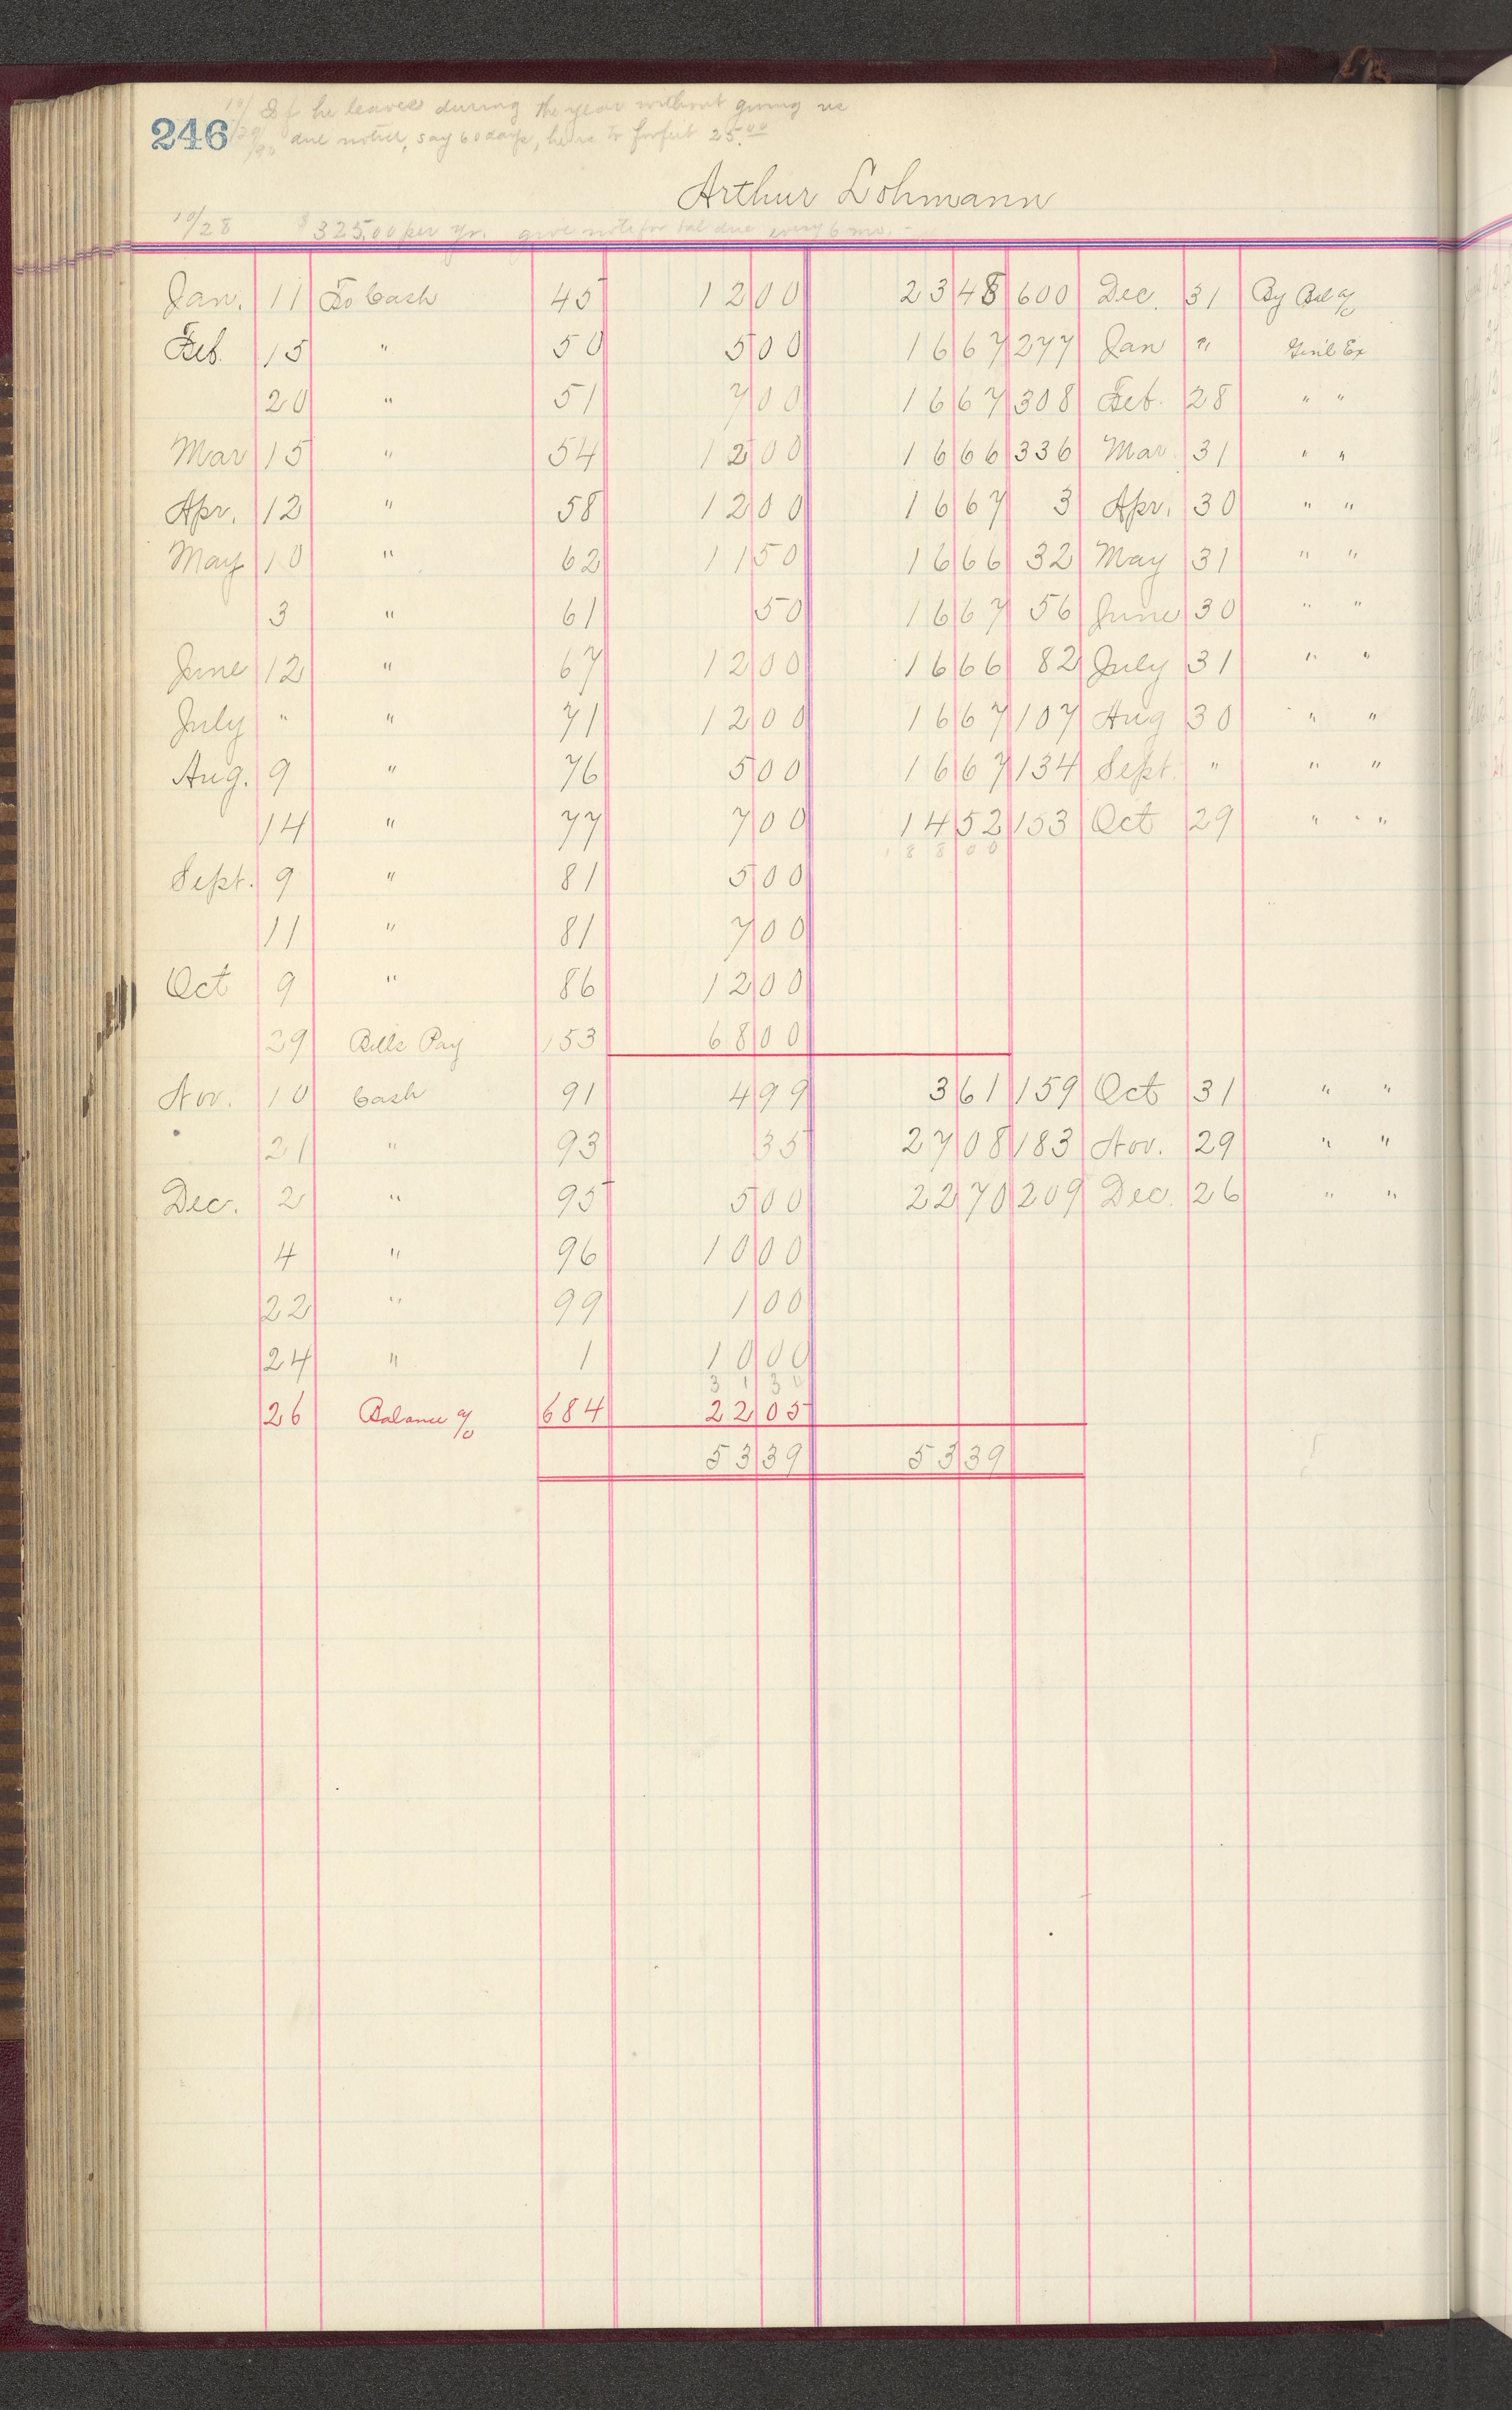 246
10/ If he leaves during the year without giving us
/29/90 due notice, say 60 days, he is to forfeit 25.00
Arthur Lohmann
10/28 $325.00 per yr. give note for bal due every 6 mo. -
Jan. 11 To Cash 45 12 00 23 48 600 Dec. 31 By Bal a/c
Feb. 15 " 50 5 00 16 67 277 Jan " Gen'l Ex
20 " 51 7 00 16 67 308 Feb. 28 " "
Mar 15 " 54 12 00 16 66 336 Mar. 31 " "
Apr. 12 " 58 12 00 16 67 3 Apr. 30 " "
May 10 " 62 11 50 16 66 32 May 31 " "
3 " 61 50 16 67 56 June 30 " "
June 12 " 67 12 00 16 66 82 July 31 " "
July " " 71 12 00 16 67 107 Aug 30 " "
Aug. 9 " 76 5 00 16 67 134 Sept. " " "
14 " 77 7 00 14 52 153 Oct 29 " "
188 00
Sept. 9 " 81 5 00
11 " 81 7 00
Oct 9 " 86 12 00
29 Bills Pay 153 68 00
Nov. 10 Cash 91 4 99 3 61 159 Oct 31 " "
21 " 93 35 27 08 183 Nov. 29 " "
Dec. 2 " 95 5 00 22 70 209 Dec. 26 " "
4 " 96 10 00
22 " 99 1 00
24 " 1 10 00
31 3
26 Balance a/c 684 22 05
53 39 53 39